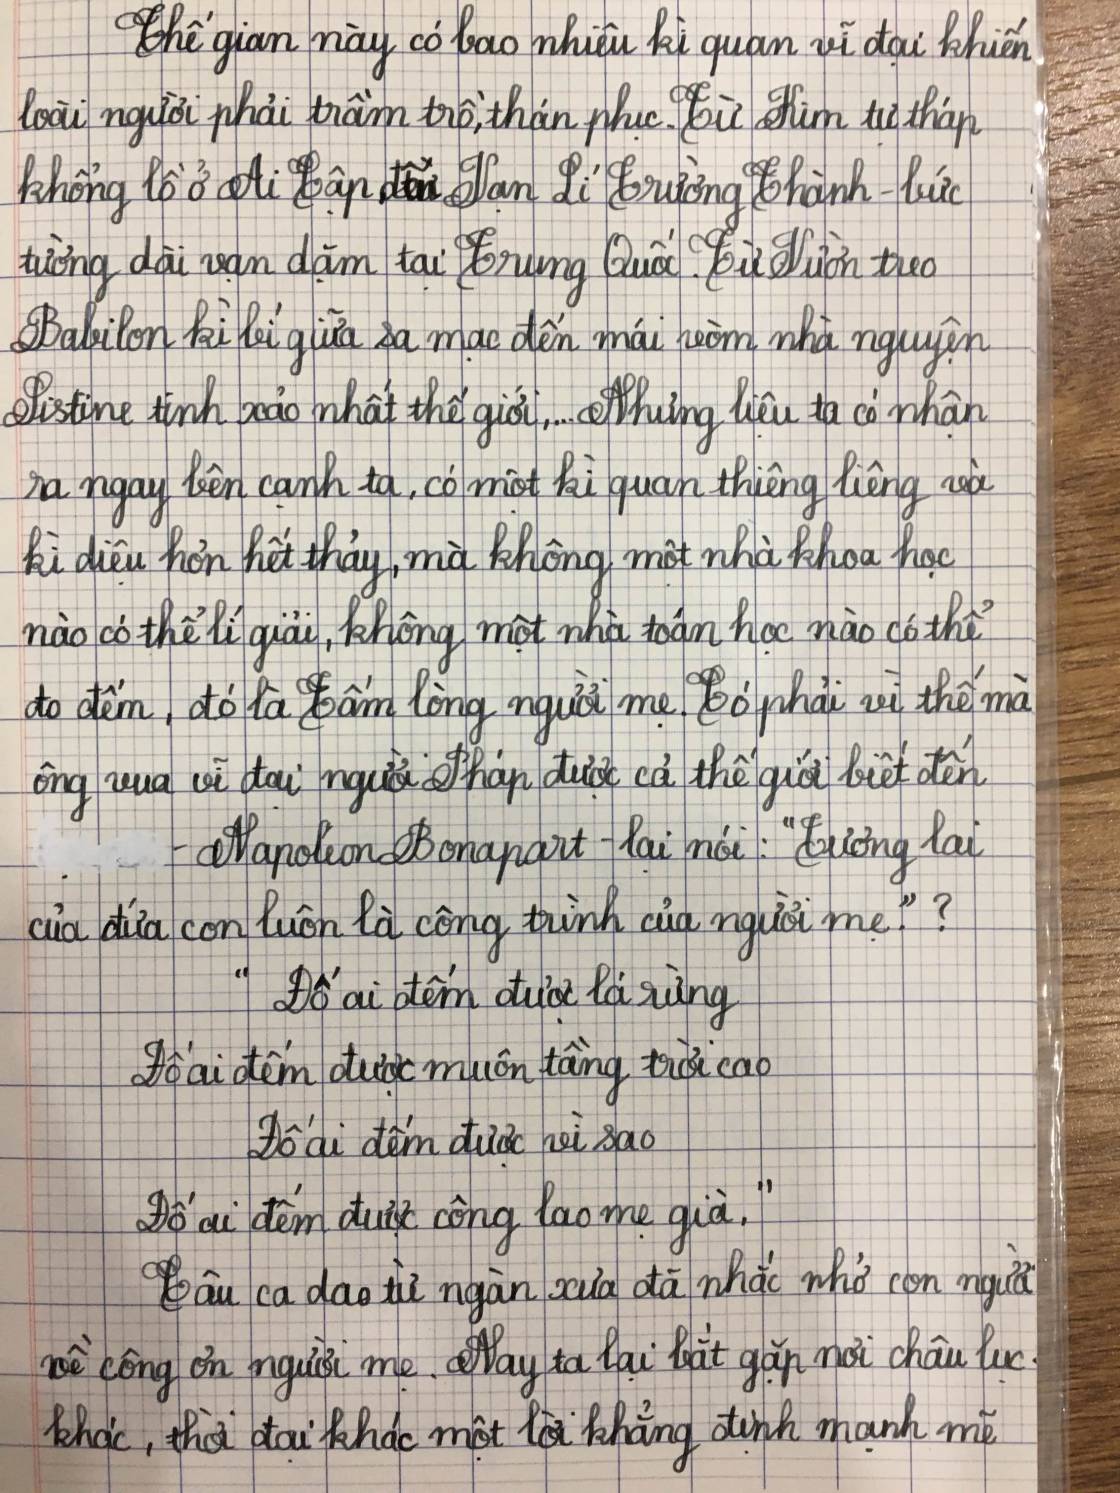 Thế gian này có bao nhiêu kì quan vĩ đại khiến
loài người phải trầm trồ, thán phục. Từ Kim tự tháp
khổng lồ ở Ai Cập, đến Vạn Lí Trường Thành - bức
tường dài vạn dặm tại Trung Quốc. Từ Vườn treo
Babilon kì bí giữa sa mạc đến mái vòm nhà nguyện
Sistine tinh xảo nhất thế giới,... Nhưng liệu ta có nhận
ra ngay bên cạnh ta, có một kì quan thiêng liêng và
kì diệu hơn hết thảy, mà không một nhà khoa học
nào có thể lí giải, không một nhà toán học nào có thể
đo đếm, đó là Tấm lòng người mẹ. Có phải vì thế mà
ông vua vĩ đại người Pháp được cả thế giới biết đến
- Napoleon Bonapart - lại nói: "Tương lai
của đứa con luôn là công trình của người mẹ."?
" Đố ai đếm được lá rừng
Đố ai đếm được muôn tầng trời cao
Đố ai đếm được vì sao
Đố ai đếm được công lao mẹ già."
Câu ca dao từ ngàn xưa đã nhắc nhở con người
về công ơn người mẹ. Nay ta lại bắt gặp nơi châu lục
khác, thời đại khác một lời khẳng định mạnh mẽ